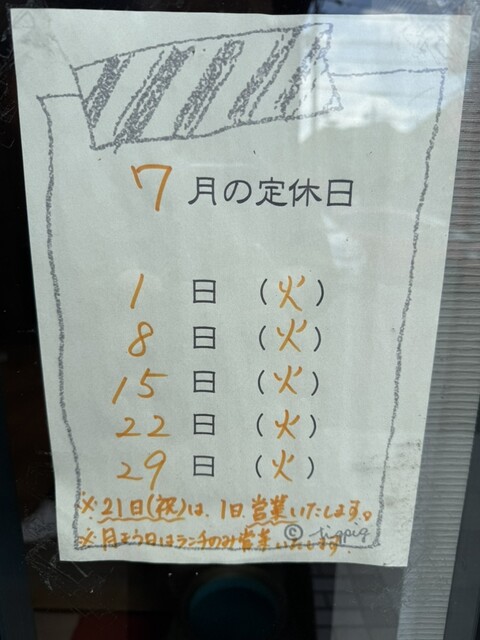 7月の定休日
1日（火）
8日（火）
15日（火）
22日（火）
29日（火）
※21日(祝)は、1日営業いたします。
※月よう日はランチのみ営業いたします
©